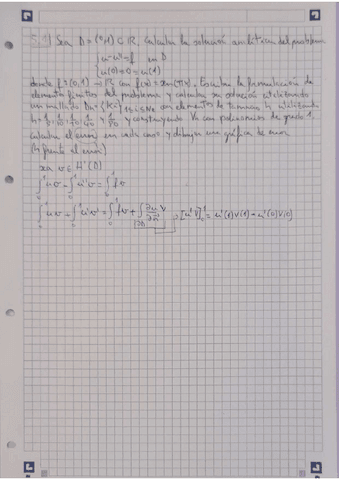 5.1 Sea D=(0,1) ⊂ ℝ. Calcular la solución analítica del problema
{ u-u''=f en D
u(0)=0=u(1)
donde f:(0,1)→ℝ con f(x)=sin(πx). Escribe la formulación de
elementos finitos del problema y calcular su solución utilizando
un mallado 1≤i≤Ne con elementos de tamaño h utilizando
y construyendo Vh con polinomios de grado 1.
Calcular el error en cada caso y dibujar una gráfica de error
(h frente al error).
sea v ∈ H¹(D)
∫₀¹ uv - ∫₀¹ u''v = ∫₀¹ fv
∫₀¹ uv - ∫₀¹ u'v' = ∫₀¹ fv + ∫ ∂u/∂n v [u'v]₀¹ = u'(1)v(1) - u'(0)v(0)
∂D